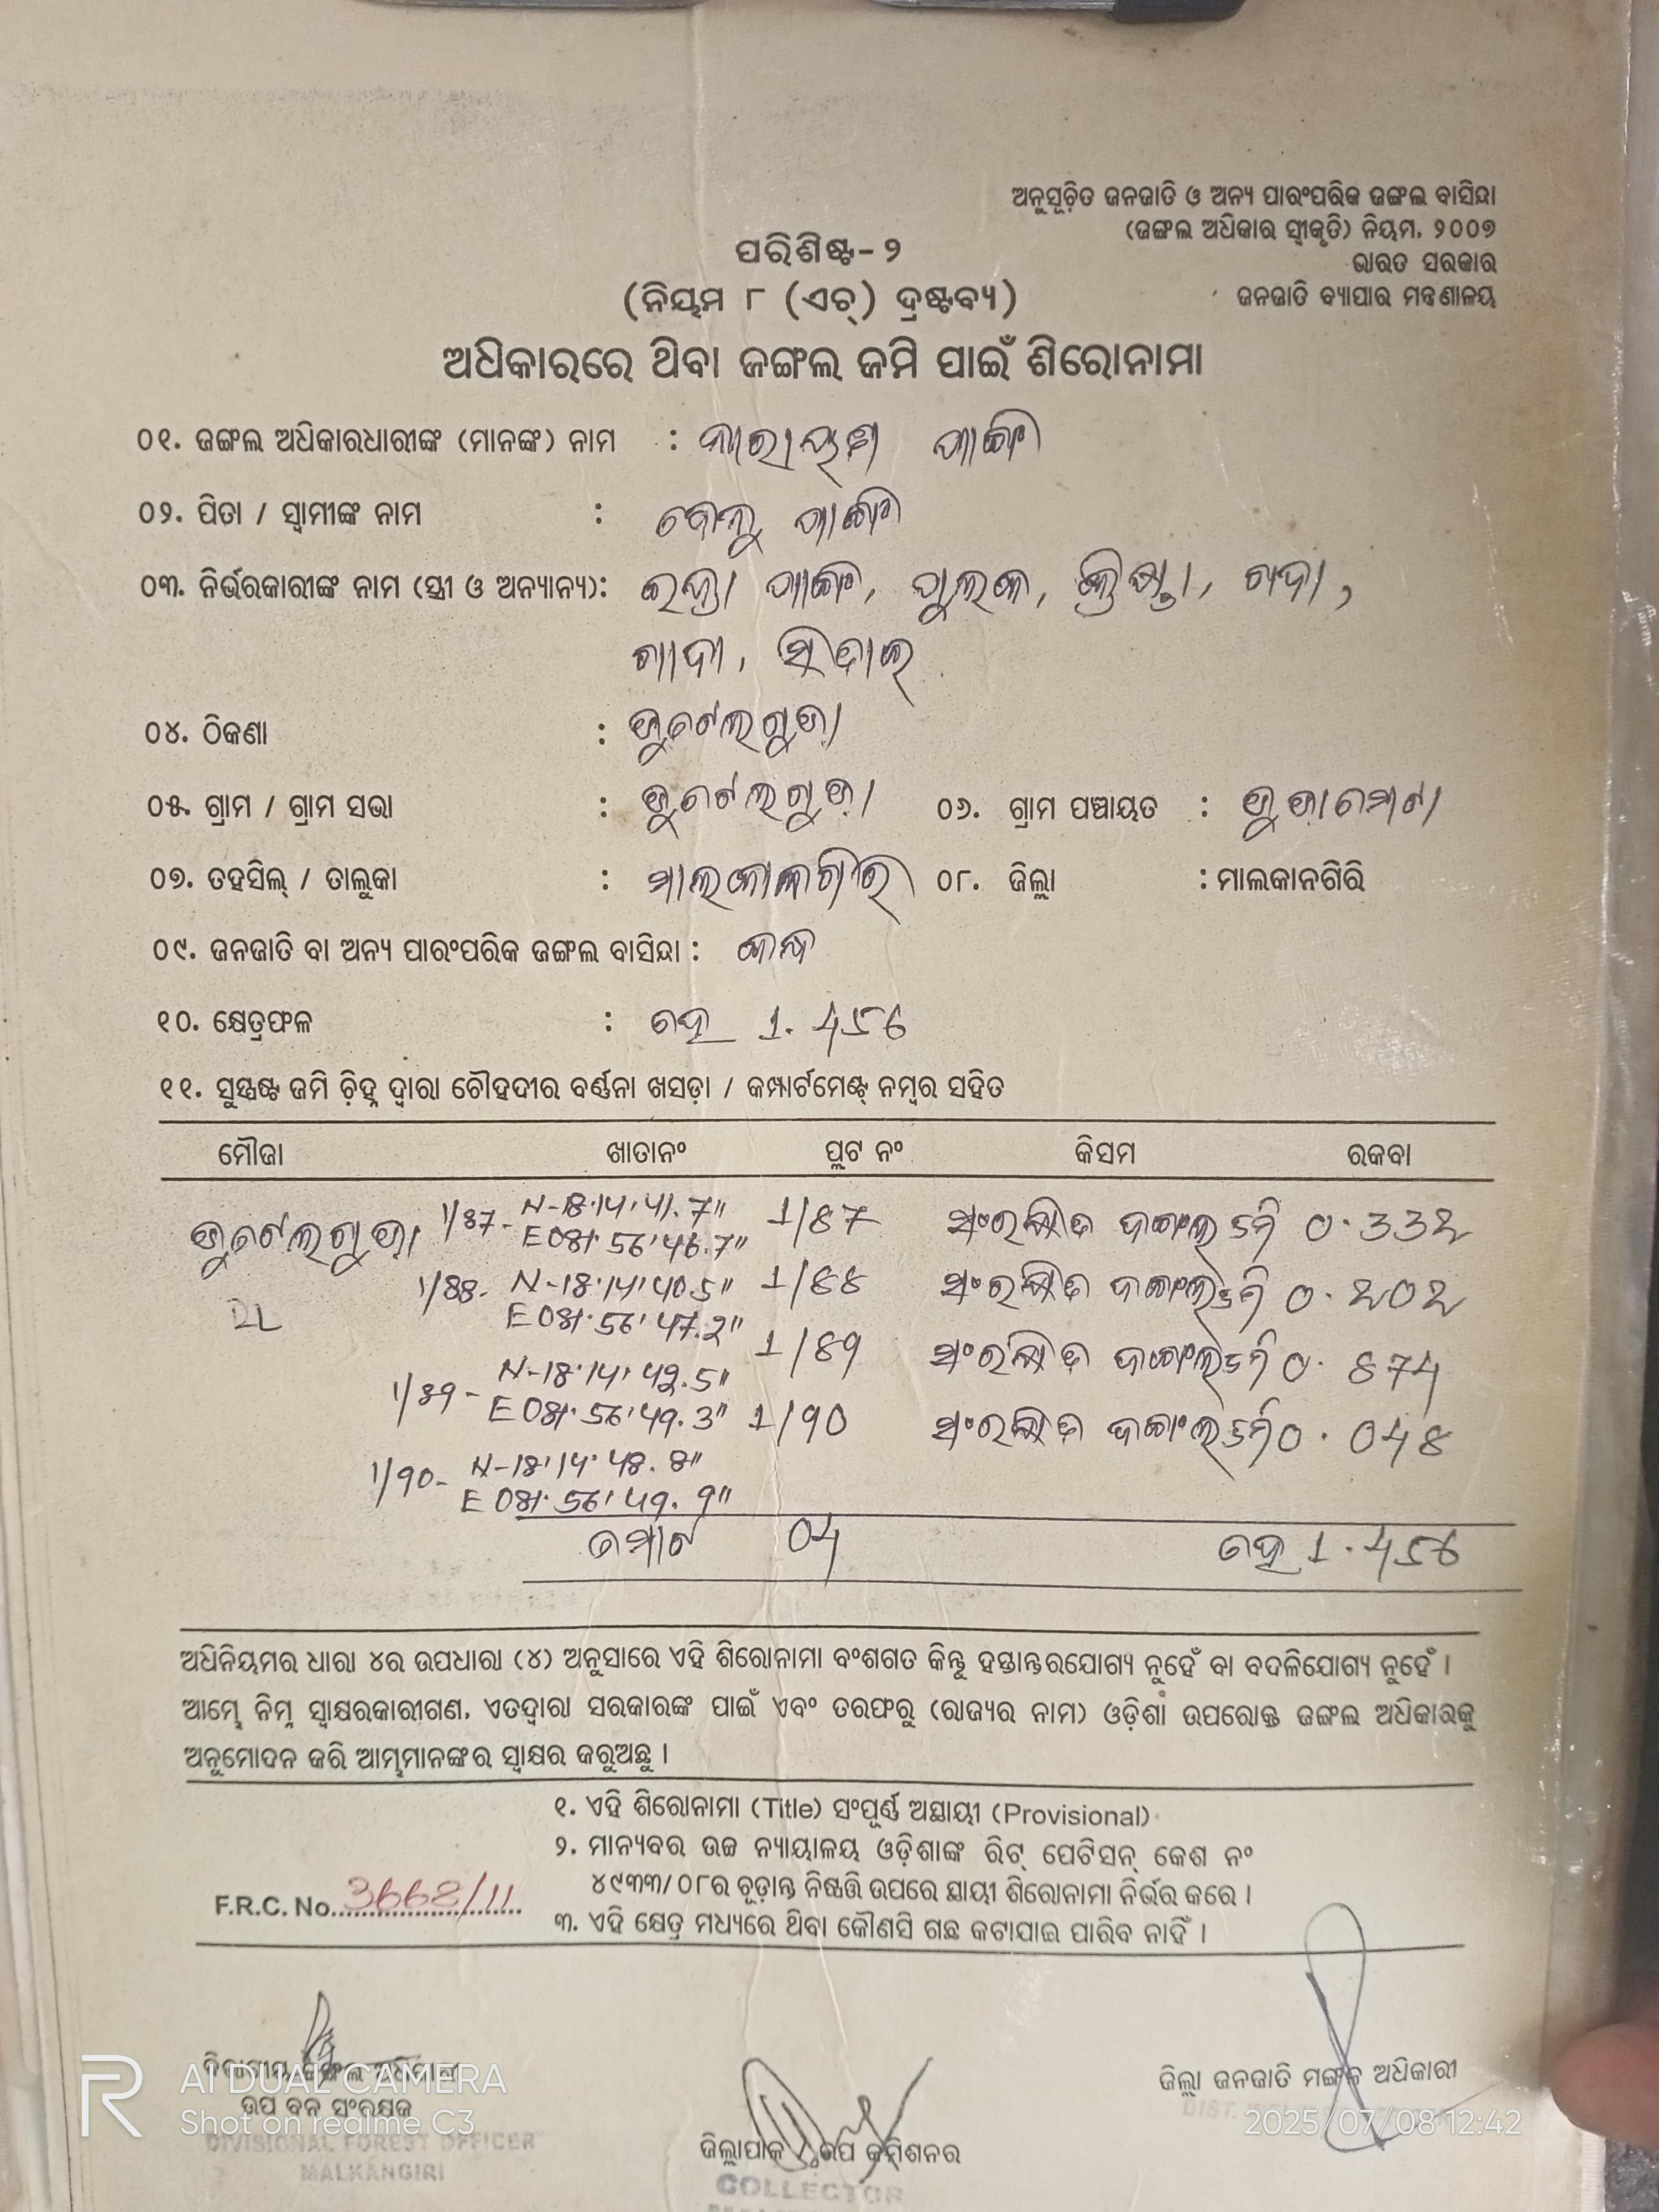 ଅନୁସୂଚିତ ଜନଜାତି ଓ ଅନ୍ୟ ପାରଂପରିକ ଜଙ୍ଗଲ ବାସିନ୍ଦା
(ଜଙ୍ଗଲ ଅଧିକାର ସ୍ୱୀକୃତି) ନିୟମ, ୨୦୦୭
ଭାରତ ସରକାର
ଜନଜାତି ବ୍ୟାପାର ମନ୍ତ୍ରଣାଳୟ
ପରିଶିଷ୍ଟ-୨
(ନିୟମ ୮ (ଏଚ୍) ଦ୍ରଷ୍ଟବ୍ୟ)
ଅଧିକାରରେ ଥିବା ଜଙ୍ଗଲ ଜମି ପାଇଁ ଶିରୋନାମା
୦୧. ଜଙ୍ଗଲ ଅଧିକାରଧାରୀଙ୍କ (ମାନଙ୍କ) ନାମ : ନାରାୟଣ ପାଙ୍ଗି
୦୨. ପିତା / ସ୍ୱାମୀଙ୍କ ନାମ : ପାଙ୍ଗି
୦୩. ନିର୍ଭରକାରୀଙ୍କ ନାମ (ସ୍ତ୍ରୀ ଓ ଅନ୍ୟାନ୍ୟ): ପାଙ୍ଗି,
୦୪. ଠିକଣା :
୦୫. ଗ୍ରାମ / ଗ୍ରାମ ସଭା : ୦୬. ଗ୍ରାମ ପଞ୍ଚାୟତ :
୦୭. ତହସିଲ୍ / ତାଲୁକା : ମାଲକାନଗିରି ୦୮. ଜିଲ୍ଲା : ମାଲକାନଗିରି
୦୯. ଜନଜାତି ବା ଅନ୍ୟ ପାରଂପରିକ ଜଙ୍ଗଲ ବାସିନ୍ଦା : କନ୍ଧ
୧୦. କ୍ଷେତ୍ରଫଳ : ହେ 1.456
୧୧. ସୁସ୍ପଷ୍ଟ ଜମି ଚ଼ିହ୍ନ ଦ୍ୱାରା ଚୌହଦୀର ବର୍ଣ୍ଣନା ଖସଡ଼ା / କମ୍ପାର୍ଟମେଣ୍ଟ୍ ନମ୍ବର ସହିତ
ମୌଜା ଖାତାନଂ ପ୍ଲଟ ନଂ କିସମ ରକବା
1/87- N-18°14'41.7" 1/87 ସଂରକ୍ଷିତ ଜଙ୍ଗଲ ଜମି 0.332
E 081°56'46.7"
1/88- N-18°14'40.5" 1/88 ସଂରକ୍ଷିତ ଜଙ୍ଗଲ ଜମି 0.202
E 081°56'47.2"
1/89- N-18°14'42.5" 1/89 ସଂରକ୍ଷିତ ଜଙ୍ଗଲ ଜମି 0.874
E 081°56'49.3"
1/90- N-18°14'48.8" 1/90 ସଂରକ୍ଷିତ ଜଙ୍ଗଲ ଜମି 0.048
E 081°56'49.9"
ମୋଟ 04 ହେ 1.456
ଅଧିନିୟମର ଧାରା ୪ର ଉପଧାରା (୪) ଅନୁସାରେ ଏହି ଶିରୋନାମା ବଂଶଗତ କିନ୍ତୁ ହସ୍ତାନ୍ତରଯୋଗ୍ୟ ନୁହେଁ ବା ବଦଳିଯୋଗ୍ୟ ନୁହେଁ ।
ଆମ୍ଭେ ନିମ୍ନ ସ୍ୱାକ୍ଷରକାରୀଗଣ, ଏତଦ୍ୱାରା ସରକାରଙ୍କ ପାଇଁ ଏବଂ ତରଫରୁ (ରାଜ୍ୟର ନାମ) ଓଡ଼ିଶା ଉପରୋକ୍ତ ଜଙ୍ଗଲ ଅଧିକାରକୁ
ଅନୁମୋଦନ କରି ଆମ୍ଭମାନଙ୍କର ସ୍ୱାକ୍ଷର କରୁଅଛୁ ।
୧. ଏହି ଶିରୋନାମା (Title) ସଂପୂର୍ଣ୍ଣ ଅସ୍ଥାୟୀ (Provisional)
୨. ମାନ୍ୟବର ଉଚ୍ଚ ନ୍ୟାୟାଳୟ ଓଡ଼ିଶାଙ୍କ ରିଟ୍ ପେଟିସନ୍ କେଶ ନଂ
୪୯୩୩/୦୮ର ଚୂଡ଼ାନ୍ତ ନିଷ୍ପତ୍ତି ଉପରେ ସ୍ଥାୟୀ ଶିରୋନାମା ନିର୍ଭର କରେ ।
F.R.C. No. 3662/11
୩. ଏହି କ୍ଷେତ୍ର ମଧ୍ୟରେ ଥିବା କୌଣସି ଗଛ କଟାଯାଇ ପାରିବ ନାହିଁ ।
ବିଭାଗୀୟ ଜଙ୍ଗଲ ଅଧିକାରୀ
ଉପ ବନ ସଂରକ୍ଷକ
DIVISIONAL FOREST OFFICER
MALKANGIRI
ଜିଲ୍ଲାପାଳ / ଉପ କମିଶନର
COLLECTOR
ଜିଲ୍ଲା ଜନଜାତି ମଙ୍ଗଳ ଅଧିକାରୀ
AI DUAL CAMERA
Shot on realme C3
2025/07/08 12:42